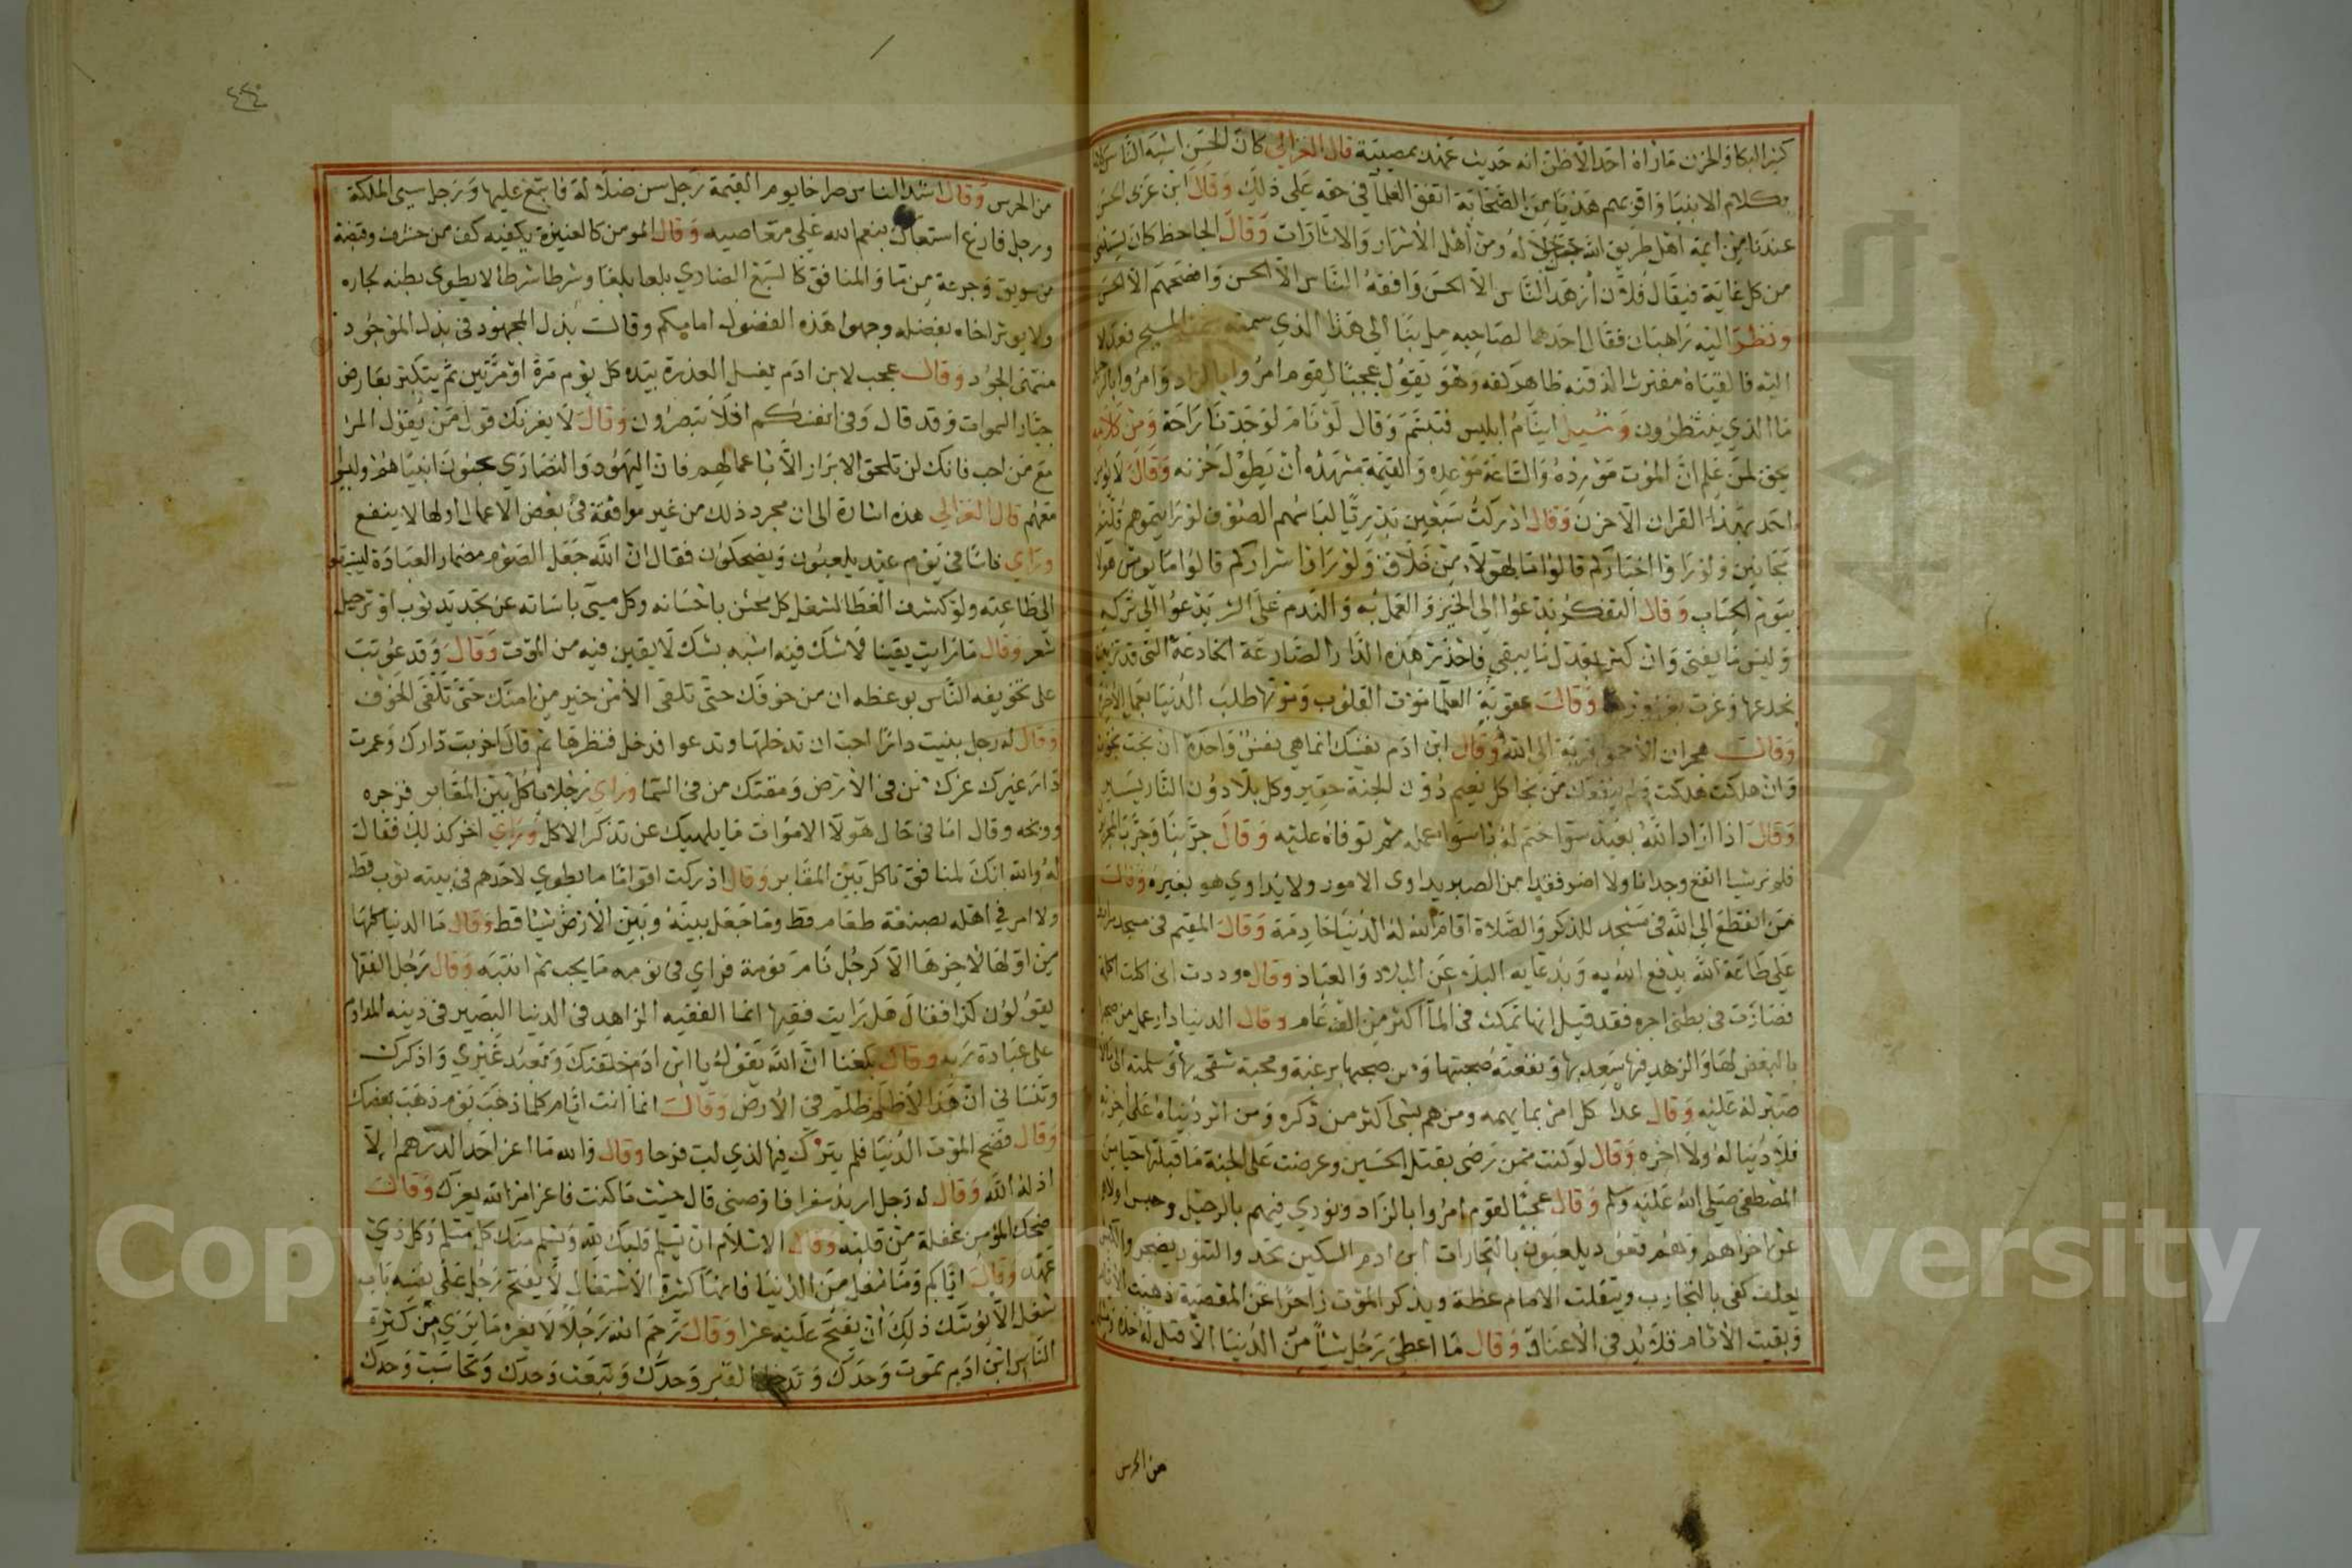 كثير البكا والحزن ما راه احد الا ظن انه حديث عهد بمصيبة قال الغزالي كان الحسن اشبه الناس كلاما
بكلام الانبيا واقربهم هديا من الصحابة اتفق العلما في حقه على ذلك وقال ابن عربى الحسن
عندنا من ايمة اهل طريق الله جل جلاله ومن اهل الاسرار والاشارات وقال الجاحظ كان يستثنى
من كل غاية فيقال فلان ازهد الناس الا الحسن وافقه الناس الا الحسن وافصحهم الا الحسن
ونظر اليه راهبان فقال احدهما لصاحبه مل بنا الي هذا الذي سمته سمت المسيح فعدلا
اليه فالفياه مفترشا لذقنه ظاهر كفه وهو يقول عجبا لقوم امروا بالزاد وامروا بالرحيل
ما الذي ينتظرون وسيل اينام ابليس فتبسم وقال لو نام لوجدنا راحة ومن كلامه
يحق لمن علم ان الموت مورده والساعة موعده والقيمة مشهده ان يطول حزنه وقال لا يومن
احد بهذا القران الا حزن وقال ادركت سبعين بدريا لباسهم الصوف لو رايتموهم قلتم
مجانين ولو راوا اخياركم قالوا ما لهولاء من خلاق ولو راوا اشراركم قالوا ما يومن هولا
بيوم الحساب وقال التفكر يدعوا الى الخير والعمل به والندم على الشر يدعوا الى تركه
وليس ما يفنى وان كثر يعدل ما يبقى فاحذر هذه الدار الصارعة الخادعة التى قد تزينت
بخدعها وغرت بغرورها وقال عقوبة العلما موت القلوب وموتها طلب الدنيا بعمل الاخرة
وقال هجران الاحمق قربة الى الله وقال ابن ادم نفسك انما هي نفس واحدة ان نجت نجوت
وان هلكت هلكت ولم ينفعك من نجا كل نعيم دون الجنة حقير وكل بلاء دون النار يسير
وقال اذا اراد الله بعبد سوا ختم له باسوا عمله ثم توفاه عليه وقال جربنا وجرب المجربون
فلم نر شيا انفع وجدانا ولا اضر فقدا من الصبر يداوى الامور ولا يداوي هو بغيره وقال
من انقطع الى الله في مسجد للذكر والصلاة اقام الله له الدنيا خادمة وقال المقيم فى مسجد
على طاعة الله يدفع الله به وبدعايه البلاء عن البلاد والعباد وقال وددت انى اكلت اكلة
فصارت فى بطنى اجره فقد قيل انها تمكث فى الما اكثر من الف عام وقال الدنيا دار عمل من صحبها
بالبغض لها والزهد فيها سعد بها ونفعته صحبتها ومن صحبها برغبة ومحبة شقى بها وسلمته الى
صبر له عليه وقال غدا كل امر بما يهمه ومن هم بشى اكثر من ذكره ومن اثر دنياه على اخرته
فلا دنيا له ولا اخره وقال لو كنت ممن رضى بقتل الحسين وعرضت على الجنة ما قبلتها حيا من
المصطفى صلى الله عليه وسلم وقال عجبا لقوم امروا بالزاد ونودي فيهم بالرحيل وحبس اولاهم
عن اخراهم وهم قعود يلعبون بالتجارات ابن ادم السكين تحد والتنور يضجر والكبش
يعلف كفى بالتجارب وبتقلب الامام عظة وبذكر الموت زاجرا عن المعصية ذهبت الايام
وبقيت الاثام قلايد في الاعناق وقال ما اعطى رجل شيا من الدنيا الا قيل له خذه
من الحرس
٤٤٠
من الحرس وقال اشد الناس صراخا يوم القيمة رجل سن ضلالة فاتبع عليها ورجل سيى الملكة
ورجل فارغ استعان بنعم الله على معاصيه وقال المومن كالعنيزة يكفيه كف من حشف وقبضة
من سويق وجرعة من ما والمنافق كالسبع الضاري بلعا بلعا وشرطا شرطا لا يطوى بطنه لجاره
ولا يوثر اخاه بفضله وجهوا هذه الفضول امامكم وقال بذل المجهود فى بذل الموجود
منتهى الجود وقال عجب لابن ادم يغسل العذرة بيده كل يوم مرة او مرتين ثم يتكبر يعارض
جبار السموات وقد قال وفى انفسكم افلا تبصرون وقال لا يغرنك قول من يقول المرا
مع من احب فانك لن تلحق الابرار الا باعمالهم فان اليهود والنصارى يحبون انبياهم وليسوا
معهم قال الغزالي هذه اشارة الى ان مجرد ذلك من غير موافقة فى بعض الاعمال او كلها لا ينفع
وراي ناسا فى يوم عيد يلعبون ويضحكون فقال ان الله جعل الصوم مضمار العبادة ليستبقوا
الى طاعته ولو كشف الغطا لشغل كل محسن باحسانه وكل مسى باساته عن تجديد ثوب او ترجيل
شعر وقال ما رايت يقينا لا شك فيه اشبه بشك لا يقين فيه من الموت وقال وقد عوتب
على تخويفه الناس بوعظه ان من خوفك حتى تلقى الامن خير من امنك حتى تلقى الخوف
وقال له رجل بنيت دارا احب ان تدخلها وتدعوا فدخل فنظرها ثم قال اخربت دارك وعمرت
دار غيرك غرك من فى الارض ومقتك من فى السما وراى رجلا ياكل بين المقابر فزجره
ووبخه وقال اما فى حال هولا الاموات ما يلهيك عن تذكر الاكل وراي اخر كذلك فقال
له والله انك لمنافق تاكل بين المقابر وقال ادركت اقواما ما يطوي لاحدهم فى بيته ثوب قط
ولا امر في اهله بصنعة طعام قط وما جعل بينه وبين الارض شيا قط وقال ما الدنيا كلها
من اولها لاخرها الا كرجل نام نومة فراى فى نومه ما يحب ثم انتبه وقال رجل الفقها
يقولون كذا فقال هل رايت فقيها انما الفقيه الزاهد فى الدنيا البصير فى دينه المداوم
على عبادة ربه وقال بلغنا ان الله يقول يا ابن ادم خلقتك وتعبد غيري واذكرك
وتنسانى ان هذا لاظلم ظلم في الارض وقال انما انت ايام كلما ذهب يوم ذهب بعضك
وقال فضح الموت الدنيا فلم يترك فيها لذي لب فرحا وقال والله ما اعز احد الدرهم الا
اذله الله وقال له رجل اريد سفرا فاوصنى قال حيث ما كنت فاعز امر الله يعزك وقال
ضحك المومن غفلة من قلبه وقال الاسلام ان تسلم قلبك لله ويسلم منك كل مسلم وكل ذي
عهد وقال اياكم وما شغل من الدنيا فانها كثيرة الاشتغال لا يفتح رجل على نفسه باب
شغل الا يوشك ذلك ان يفتح عليه عشرا وقال رحم الله رجلا لا يغره ما يرى من كثرة
الناس ابن ادم تموت وحدك وتدخل القبر وحدك وتبعث وحدك وتحاسب وحدك
Copyright © King Saud University